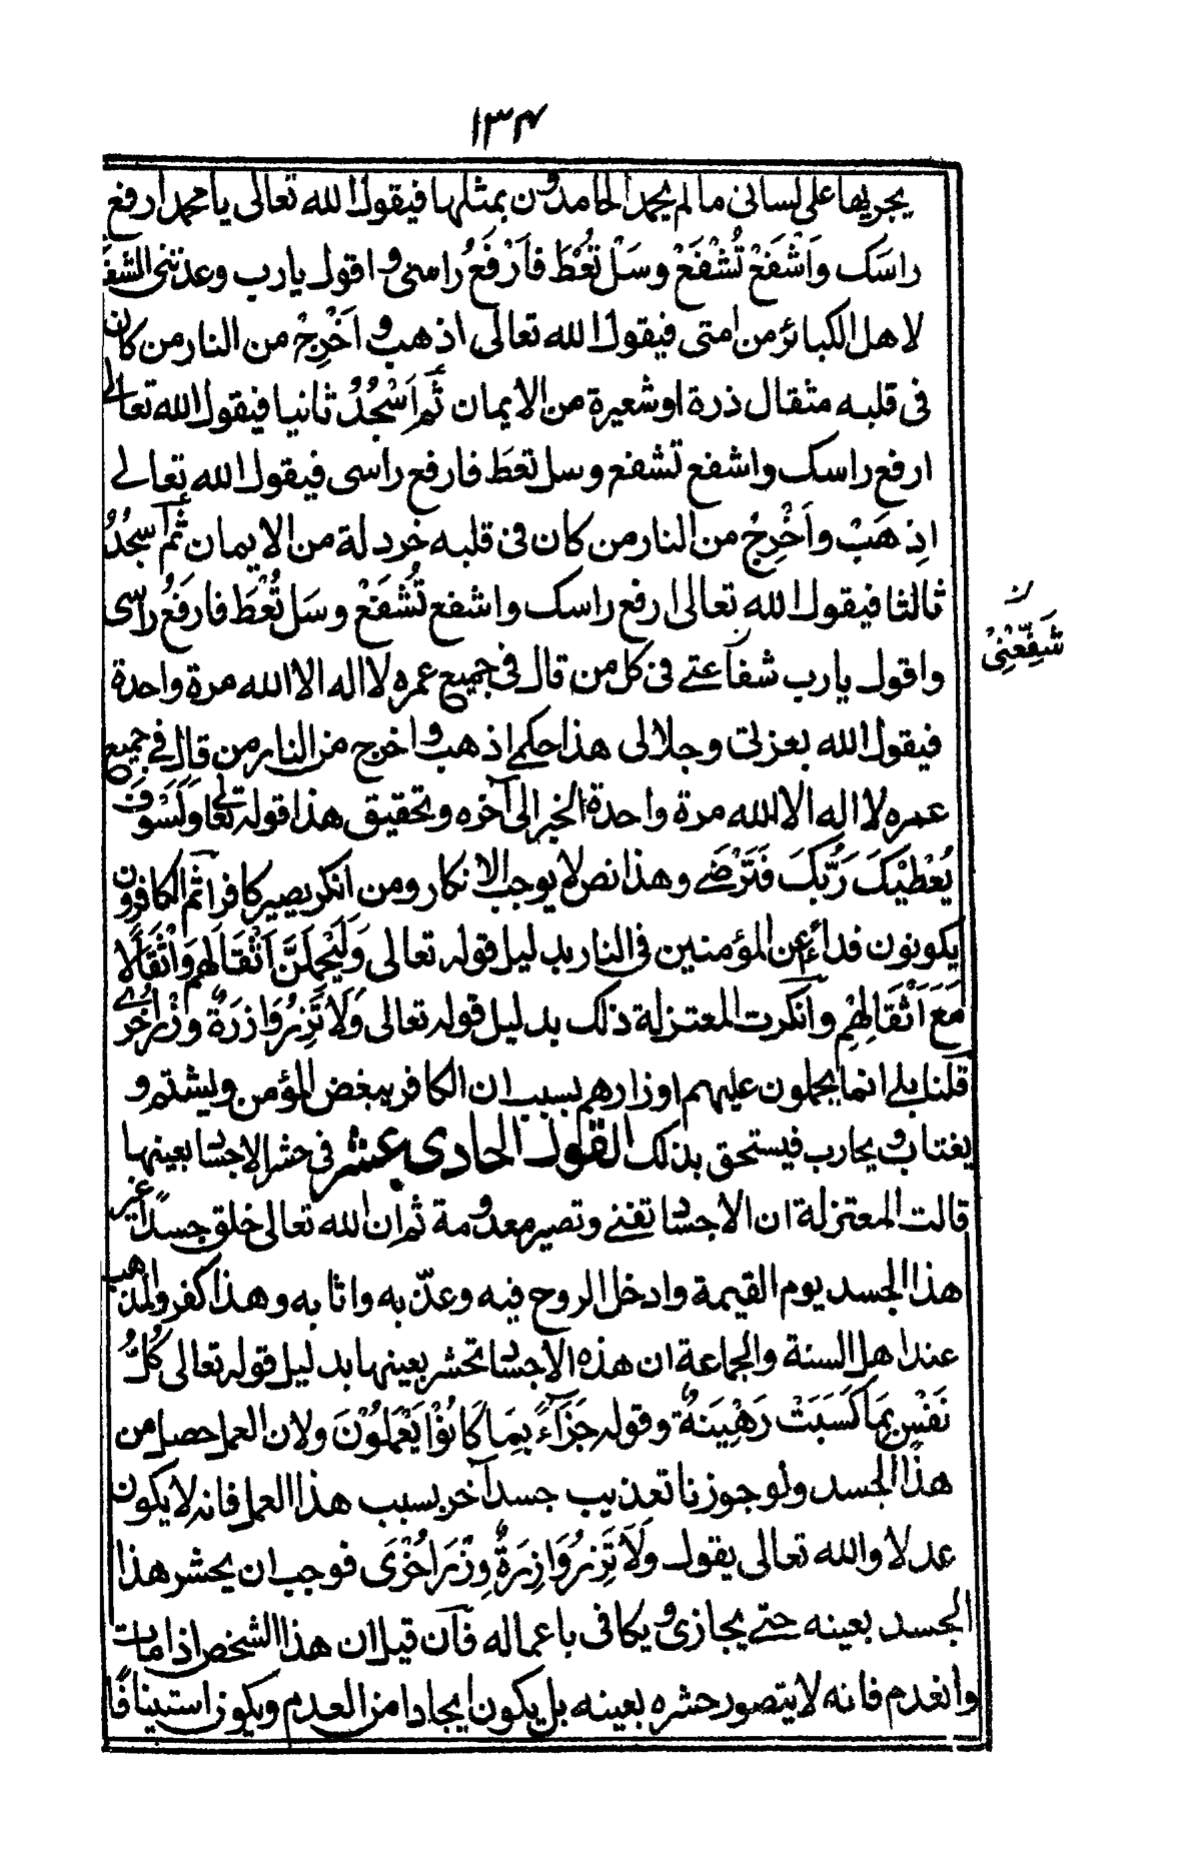 ١٣٤
يجريها على لسانى مالم يحمد الحامدون بمثلها فيقول الله تعالى يا محمد ارفع
راسَك وَاَشْفَعْ تُشْفَعْ وسَلْ تُعْطَ فاَرْفَعُ راسى واقول يارب وعدتنى الشفا
لاهل الكبائر من امتى فيقول الله تعالى اذهب واَخْرِجْ من النار من كان
فى قلبه مثقال ذرة او شعيرة من الايمان ثم اَسْجُدُ ثانيا فيقول الله تعالى
ارفع راسك واشفع تشفع وسل تعطَ فارفع راسى فيقول الله تعالے
اِذهَبْ واَخْرِجْ من النار من كان فى قلبه خردلة من الايمان ثم اسجُدُ
ثالثا فيقول الله تعالى ارفع راسك واشفع تُشفَعْ وسَل تُعْطَ فارفَعُ راسى
واقول يارب شفاعتے فى كل من قال فى جميع عمره لا اله الا الله مرة واحدة
شَفِّعْنِىْ
فيقول الله بعزتى وجلالى هذا حكمے اذهب واخرج من النار من قال فے جميع
عمره لا اله الا الله مرة واحدة الخبر الى آخره وتحقيق هذا قوله تعالے وَلَسَوْفَ
يُعْطِيْكَ رَبُّكَ فَتَرْضٰے وهذا نص لا يوجب الانكار ومن انكر يصير كافرا ثم الكافرون
يكونون فداءً عن المؤمنين فى النار بدليل قوله تعالى وَلَيَحْمِلُنَّ اَثْقَالَهُمْ وَاَثْقَالًا
مَعَ اَثْقَالِهِمْ وانكرت المعتزلة ذلك بدليل قوله تعالى وَلَا تَزِرُ وَازِرَةٌ وِزْرَ اُخْرٰے
قلنا بلے انما يحملون عليهم اوزارهم بسبب ان الكافر يبغض المؤمن ويشتم و
يغتاب ويحارب فيستحق بذلك القول الحادى عشر فى حشر الاجساد بعينها
قالت المعتزلة ان الاجساد تفنے وتصير معدومة ثم ان الله تعالى خلق جسدًا غير
هذا الجسد يوم القيمة وادخل الروح فيه وعذّبه واثابه وهذا كفر والمذهب
عند اهل السنة والجماعة ان هذه الاجساد تحشر بعينها بدليل قوله تعالى كُلُّ
نَفْسٍ بِمَا كَسَبَتْ رَهِيْنَةٌ وقوله جَزَآءً بِمَا كَانُوْا يَعْمَلُوْنَ ولان العمل حصل من
هذا الجسد ولو جوزنا تعذيب جسد آخر بسبب هذا العمل فانه لا يكون
عدلا والله تعالى يقول وَلَا تَزِرُ وَازِرَةٌ وِزْرَ اُخْرٰى فوجب ان يحشر هذا
الجسد بعينه حتے يجازى ويكافى باعماله فان قيل ان هذا الشخص اذا مات
وانعدم فانه لا يتصور حشره بعينه بل يكون ايجادا من العدم ويكون استينافًا